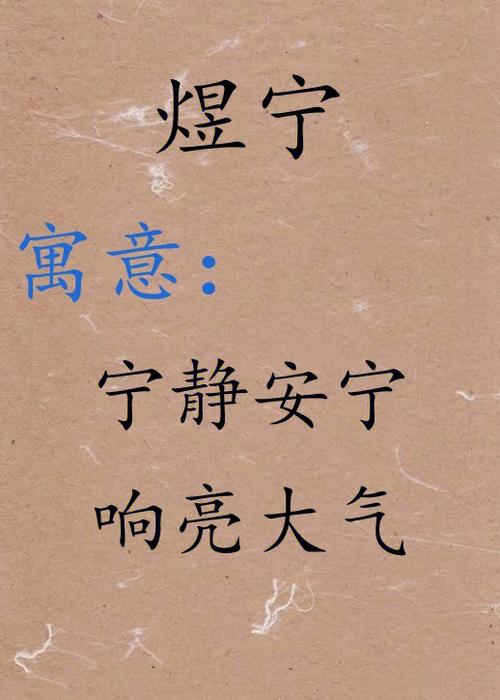 煜宁
寓意：
宁静安宁
响亮大气